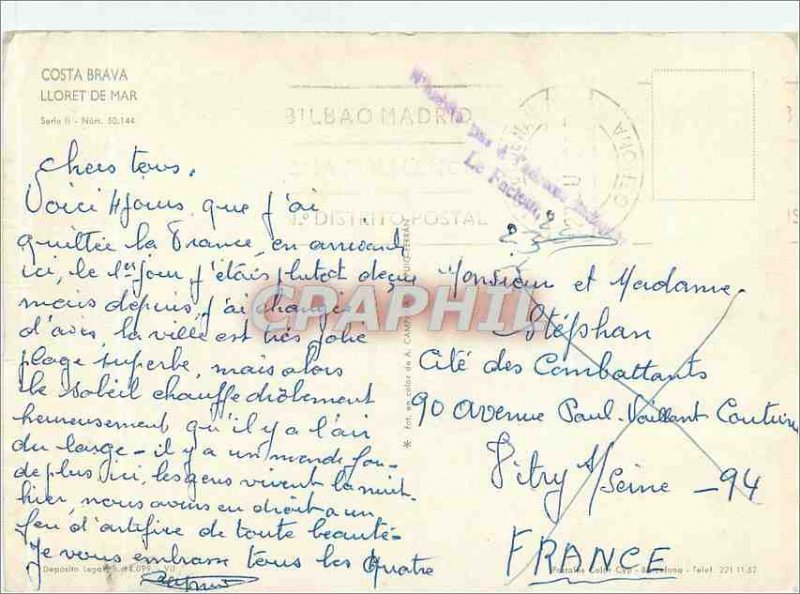 COSTA BRAVA
LLORET DE MAR
Serie II - Núm. 50.144
BILBAO MADRID
1.º DISTRITO POSTAL
N'habite pas à l'adresse indiquée
Le Facteur,
Chers tous.
Voici 4 jours que j'ai
quittée la France, en arrivant
ici, le 1er jour j'étais plutot deçue
mais depuis, j'ai changé
d'avis, la ville est très jolie
plage superbe, mais alors
le soleil chauffe drôlement
heureusement qu'il y a l'air
du large - il y a un monde fou -
de plus ici, les gens vivent la nuit.
hier, nous avions eu droit a un
feu d'artifice de toute beauté -
Je vous embrasse tous les quatre
Monsieur et Madame.
Stéphan
Cité des Combattants
90 avenue Paul-Vaillant Couturier
Vitry s/Seine - 94
FRANCE
* Fot. en color de A. CAMP
Depósito Legal B. 14.099 - VII
Postales Color CyP - Barcelona - Telef. 221 11 57
CRAPHIL